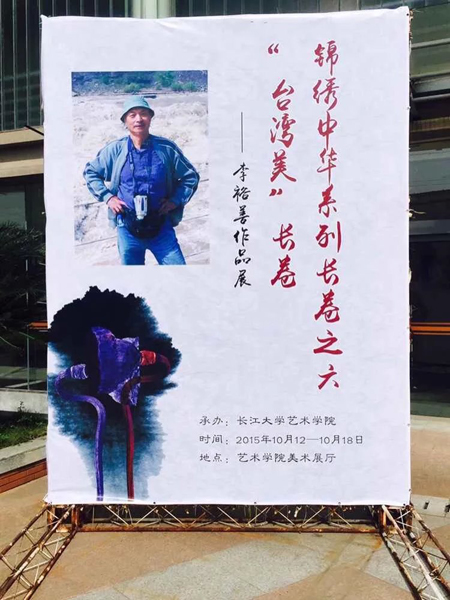 锦绣中华系列长卷之六
“台湾美”长卷
——李裕善作品展
承办：长江大学艺术学院
时间：2015年10月12—10月18日
地点：艺术学院美术展厅